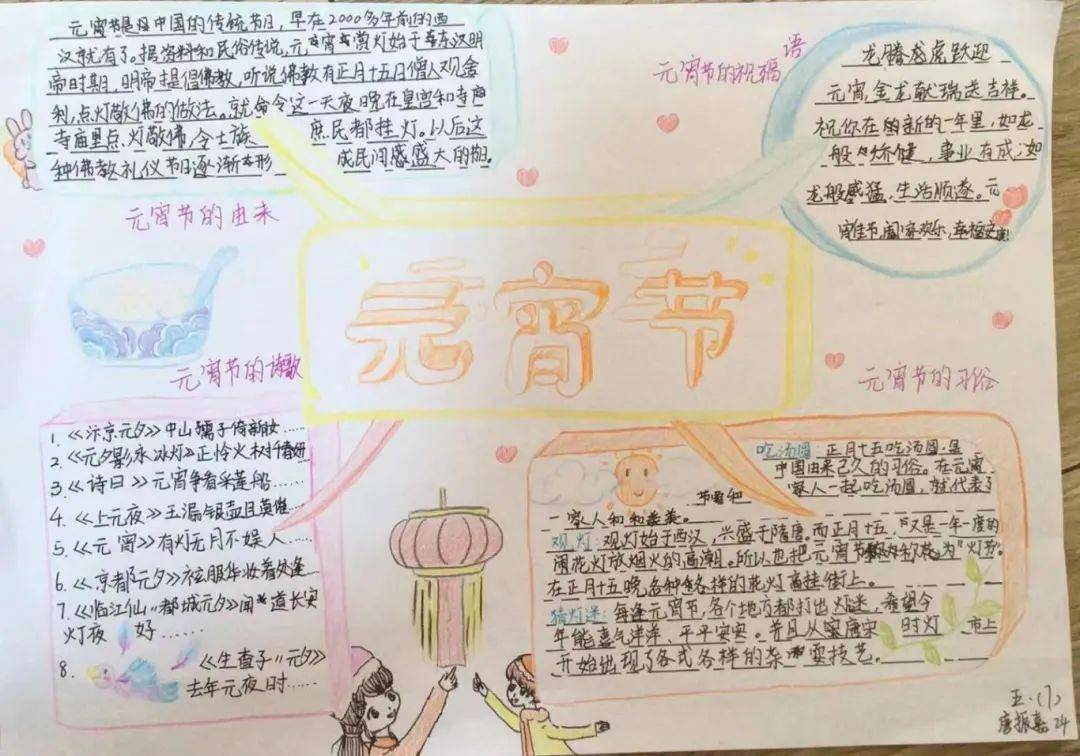 元宵节是中国的传统节日，早在2000多年前的西
汉就有了。据资料和民俗传说，元宵赏灯始于东汉明
帝时期，明帝提倡佛教，听说佛教有正月十五日僧人观舍
利，点灯敬佛的做法。就命令这一天夜晚在皇宫和寺
寺庙里点灯敬佛，令士族庶民都挂灯。以后这
种佛教礼仪节日逐渐形成民间盛大的
元宵节的由来
元宵节的祝福语
龙腾龙虎跃迎
元宵，金龙献瑞送吉祥。
祝你在的新的一年里，如龙
般矫健，事业有成；如
龙般威猛，生活顺遂。元
宵佳节，阖家欢乐，幸福安康！
元宵节
元宵节的诗歌
1.《汴京元夕》中山孺子倚新妆……
2.《元夕影永冰灯》正怜火树千春妍
3.《诗曰》元宵争看采莲船……
4.《上元夜》玉漏银壶且莫催……
5.《元宵》有灯无月不娱人……
6.《京都元夕》袨服华妆着处逢……
7.《临江仙“都城元夕》闻道长安
灯夜好……
8.《生查子“元夕》
去年元夜时……
元宵节的习俗
吃汤圆：正月十五吃汤圆，是
中国由来已久的习俗。在元宵
节和家人一起吃汤圆，就代表了
一家人和和美美。
观灯：观灯始于西汉，兴盛于隋唐。而正月十五，又是一年一度的
闹花灯放烟火的高潮。所以也把元宵节称为“灯节”。
在正月十五晚，各种各样的花灯高挂街上。
猜灯迷：每逢元宵节，各个地方都打出灯迷，希望今
年能喜气洋洋、平平安安。并且从唐宋时灯市上
开始出现了各式各样的杂耍技艺。
五·(7)
唐振嘉 24